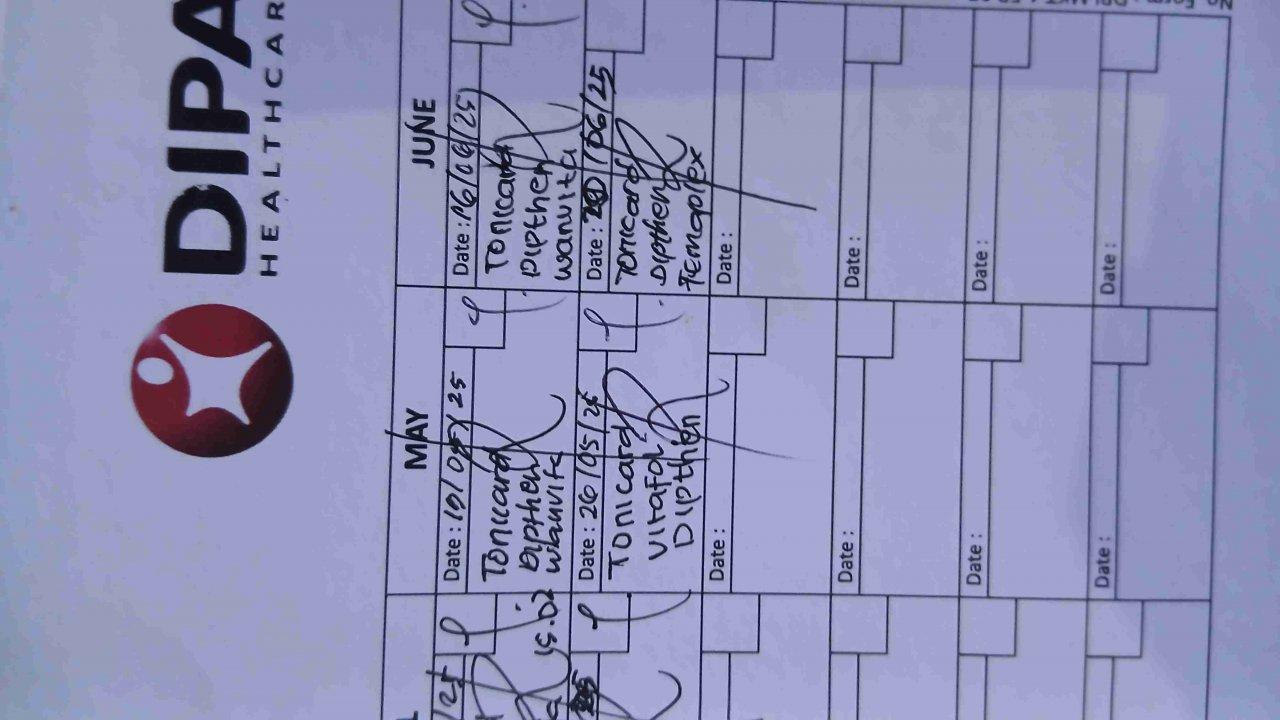 DIPA
HEALTHCAR
MAY
JUNE
Date : 26/05/25
Tonicard
Vitafol
Dipthen
Date :
Date :
Date :
Date :
Date : 19/05/25
Tonicard
Dipthen
Wanvita
Date : 16/06/25
Tonicard
Dipthen
Wanvita
Date : /06/25
Tonicard
Dipthen
Femoplex
Date :
Date :
Date :
Date :
/25
15.02